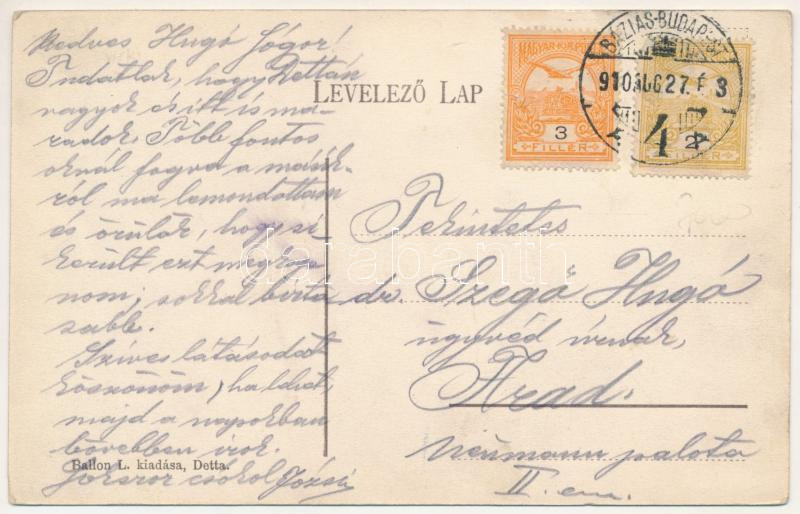 Kedves Hugó Sógor!
Tudatlak, hogy Dettán
vagyok és itt is ma-
radok. Több fontos
oknál fogva a
ról ma lemondottam
és örülök, hogy si-
került ezt meg
nom; sokkal
sabb.
Szíves látásodat
köszönöm, ha lehet,
majd a napokban
bővebben írok.
Sokszor csókol Józsi
LEVELEZŐ LAP
MAGYAR KIR. POSTA
3
FILLÉR
2
FILLÉR
BAZIAS-BUDAPEST
910 AUG 27.
47
Tekintetes
dr. Szegő Hugó
ügyvéd úrnak,
Arad.
Neumann palota
II. em.
Ballon L. kiadása, Detta.
darabanth